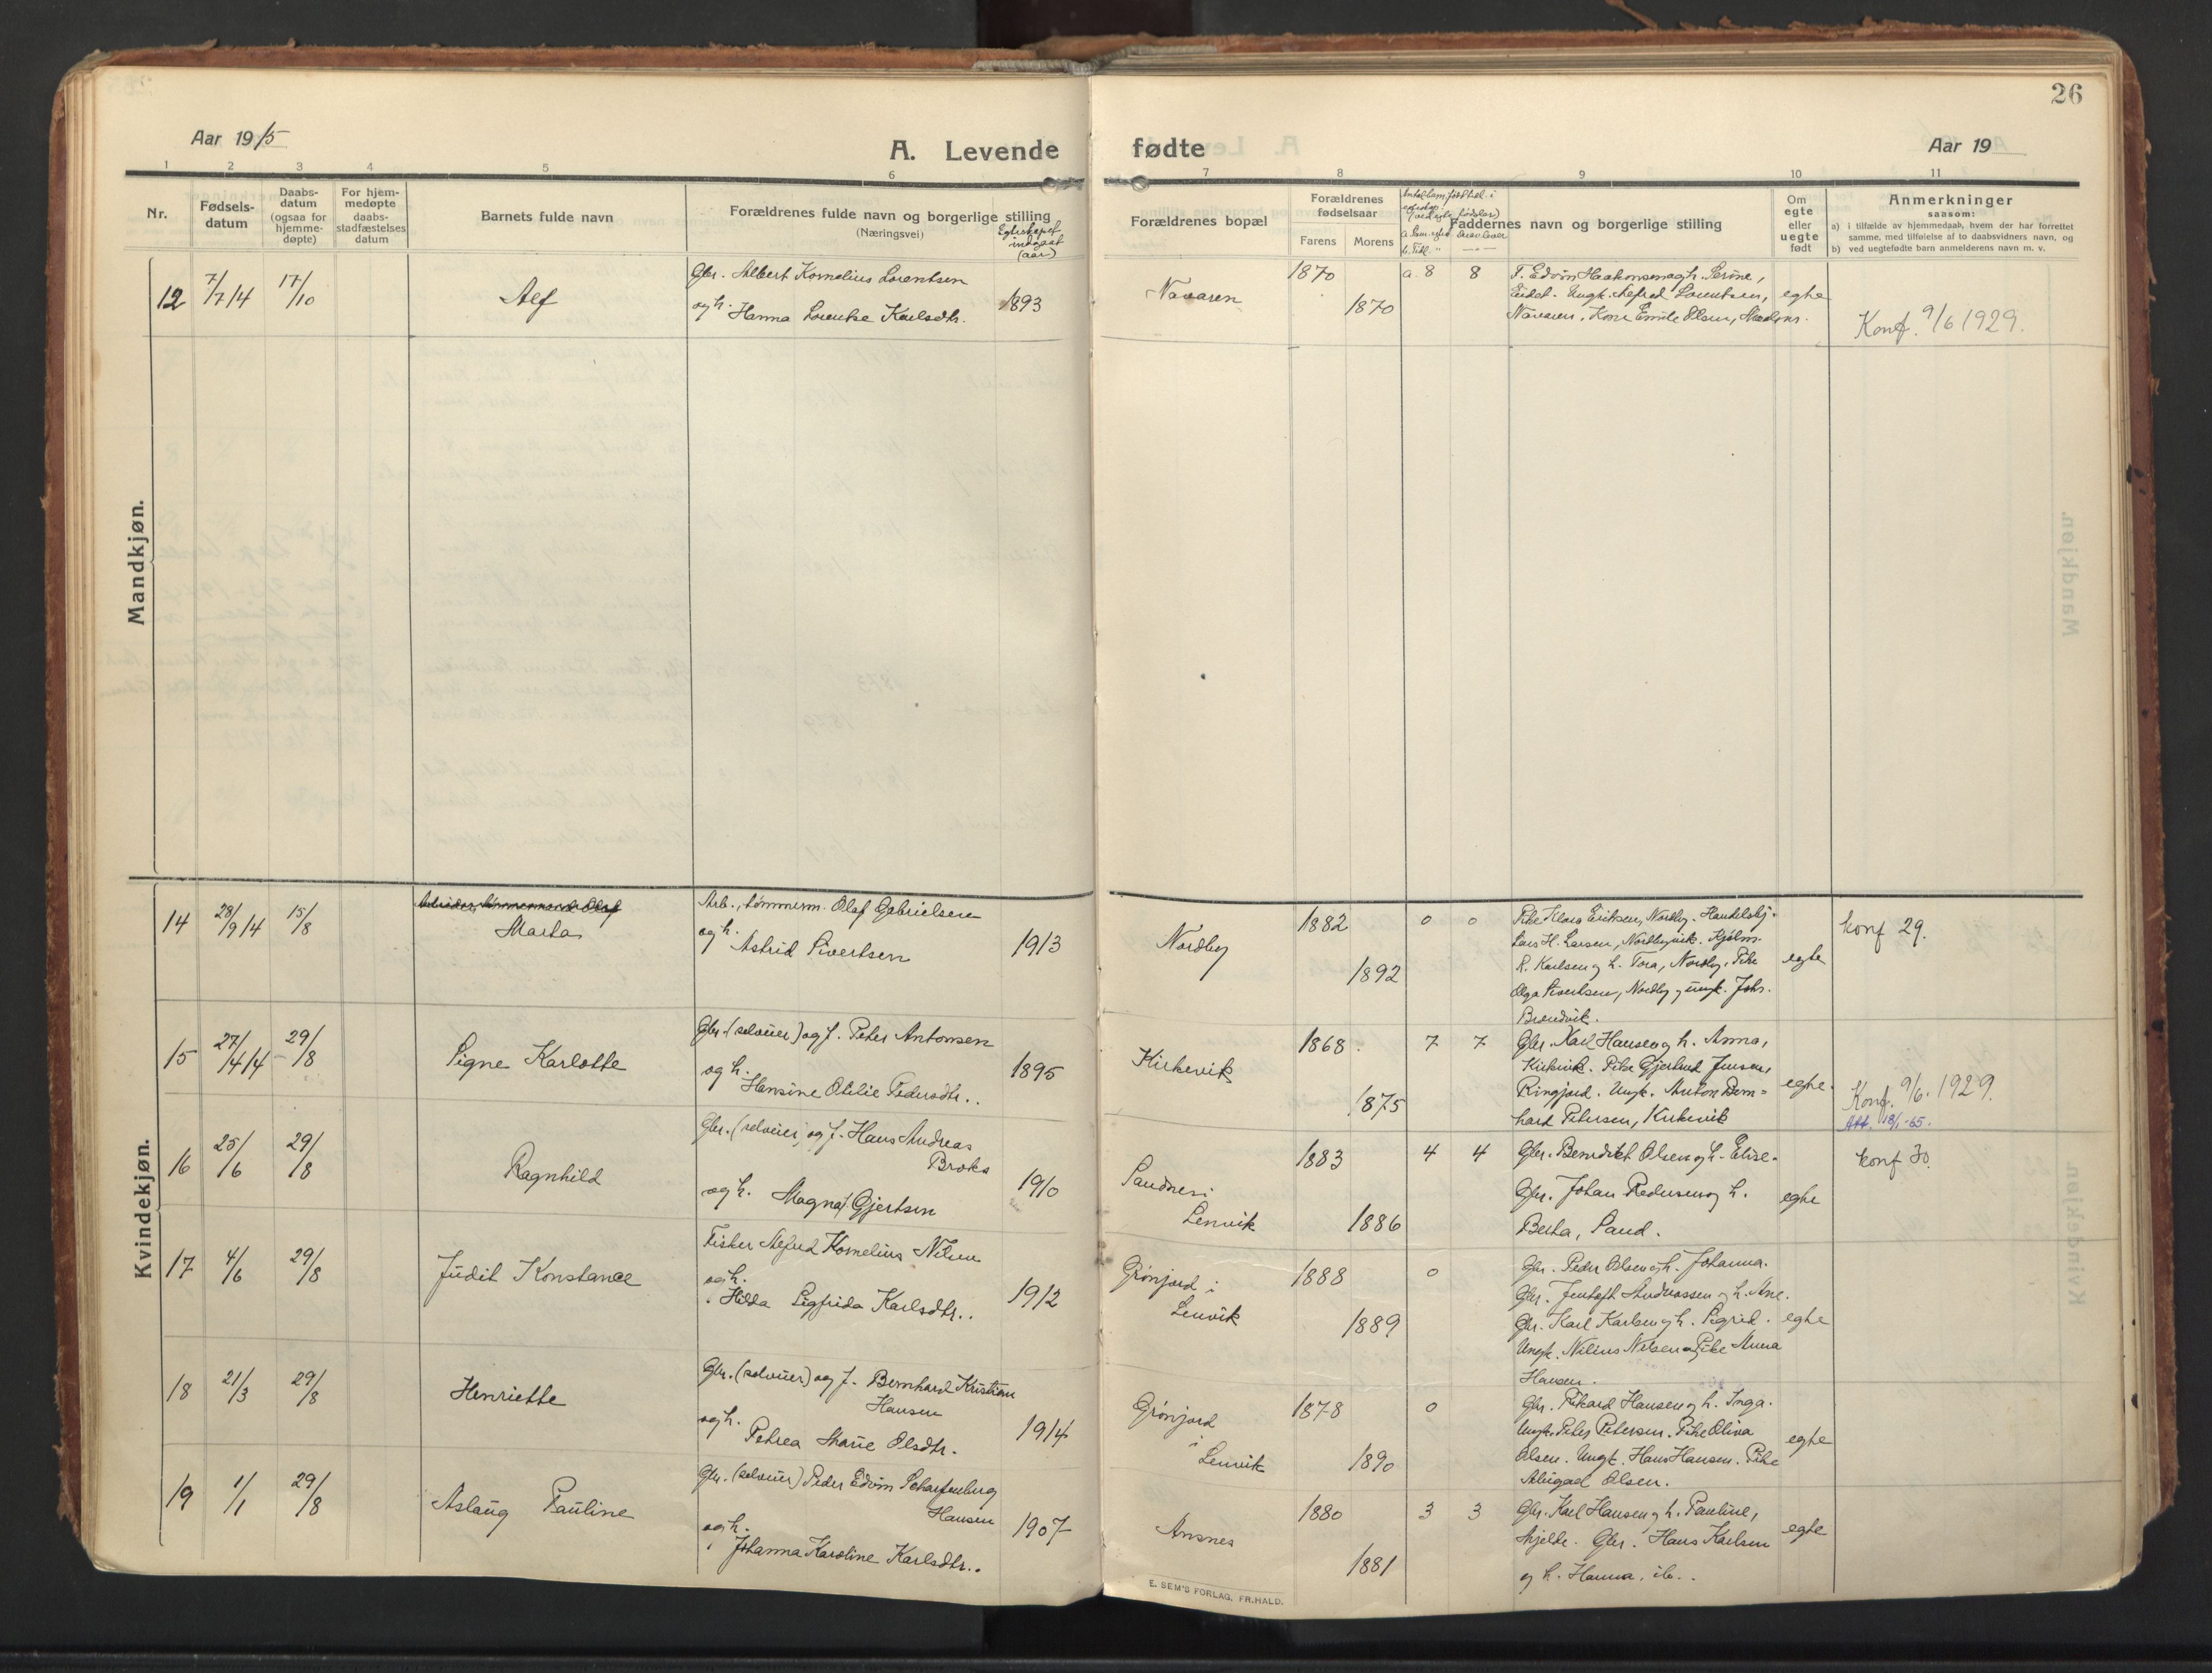 26
Aar 1915
A. Levende
fødte
Aar 19
1 2 3 4 5 6 7 8 9 10 11
Nr.
Fødsels-
datum
Daabs-
datum
(ogsaa for
hjemme-
døpte)
For hjem-
medøpte
daabs-
stadfæstelses
datum
Barnets fulde navn
Forældrenes fulde navn og borgerlige stilling
(Næringsvei)
Egteskapet
indgaat
(aar)
Forældrenes bopæl
Forældrenes
fødselsaar
Farens Morens
Faddernes navn og borgerlige stilling
Om
egte
eller
uegte
født
Anmerkninger
saasom:
a) i tilfælde av hjemmedaab, hvem der har forrettet
samme, med tilføielse af to daabsvidners navn, og
b) ved uegtefødte barn anmelderens navn m. v.
Mandkjøn.
12 7/7 14 17/10 Alf
Gbr. Albert Kornelius Lorentsen
og h. Hanna Lorentse Karlsdtr. 1893
Navaren
1870
1870
a. 8 8
F. Edvin Haakonsen og h. Serine,
Eidet. Ungk. Alfred Lorentsen,
Navaren, Kone Emilie Olsen,
egte
Konf. 9/6 1929.
Kvindekjøn.
14 28/9 14 15/8
Marta
Arb., tømmerm. Olaf Gabrielsen
og h.
Astrid Sivertsen 1913
Nordby
1882
1892
0 0
Pike Klara Eriksen, Nordby. Handelsbj.
Lars H. Larsen, Nordbyvik. Kjølm.
R. Karlsen og h. Tora, Nordby, Pike
Olga Sivertsen, Nordby og ungk. Johs.
Brændvik.
egte
konf 29.
15 27/4 14 29/8
Signe Karlotte
Gbr. (selveier) og f. Peter Antonsen
og h.
Hansine Otilie Pedersdtr. 1895
Kirkevik
1868
1875
7 7
Gbr. Karl Hansen og h. Anna,
Kirkevik. Pike Gjertrud Jensen,
Ringjord. Ungk. Anton Bern=
hard Petersen, Kirkevik
egte.
Konf. 9/6. 1929.
Att. 18/1-65.
16 25/6 29/8
Ragnhild
Gbr. (selveier) og f. Hans Andreas
Broks
og h. Magna Gjertsen 1910
Sandnes i
Lenvik
1883
1886
4 4
Gbr. Benedikt Olsen og h. Elise.
Gbr. Johan Pedersen og h.
Berta, Sand.
egte
konf 30.
17 4/6 29/8
Judit Konstance
Fisker Alfred Kornelius Nilsen
og h.
Hilda Sigfrida Karlsdtr. 1912
Grønjord i
Lenvik
1888
1889
0
Gbr. Peder Olsen og h. Johanna.
Gbr. Jentoft Andreassen og h. Ane.
Gbr. Karl Karlsen og h. Sigrid.
Ungk. Nilius Nilsen og Pike Anna
Hansen.
egte
18 21/3 29/8
Henriette
Gbr. (selveier) og f. Bernhard Kristian
Hansen
og h.
Petrea Marie Olsdtr. 1914
Grønjord
i
Lenvik
1878
1890
0
Gbr. Rikard Hansen og h. Inga.
Ungk. Peter Petersen. Pike Oliva
Olsen. Ungk. Hans Hansen. Pike
Abigael Olsen.
egte
19 1/1 29/8
Aslaug Pauline
Gbr. (selveier) Peder Edvin Scharfenberg
Hansen
og h.
Johanna Karoline Karlsdtr. 1907
Ansnes
1880
1881
3 3
Gbr. Karl Hansen og h. Pauline,
Mjelde. Gbr. Hans Karlsen
og h. Hanna, ib.
egte
E. SEM'S FORLAG, FR.HALD.